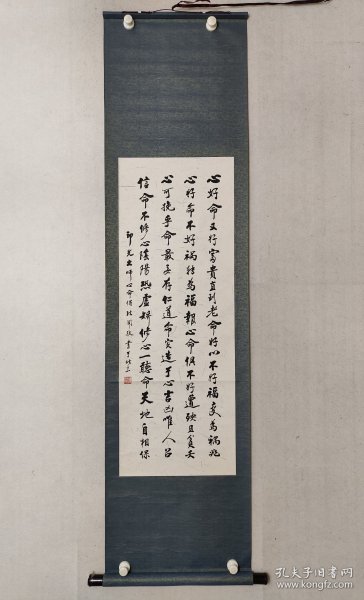 心好命又好富貴直到老命好心不好福變為禍兆
心好命不好禍轉為福報心命俱不好遭殃且貧夭
心可挽乎命最要存仁道命實造于心吉凶唯人召
信命不修心陰陽恐虛矯修心一聽命天地自相保
印光大師心命偈
孔夫子旧书网
www.kongfz.com